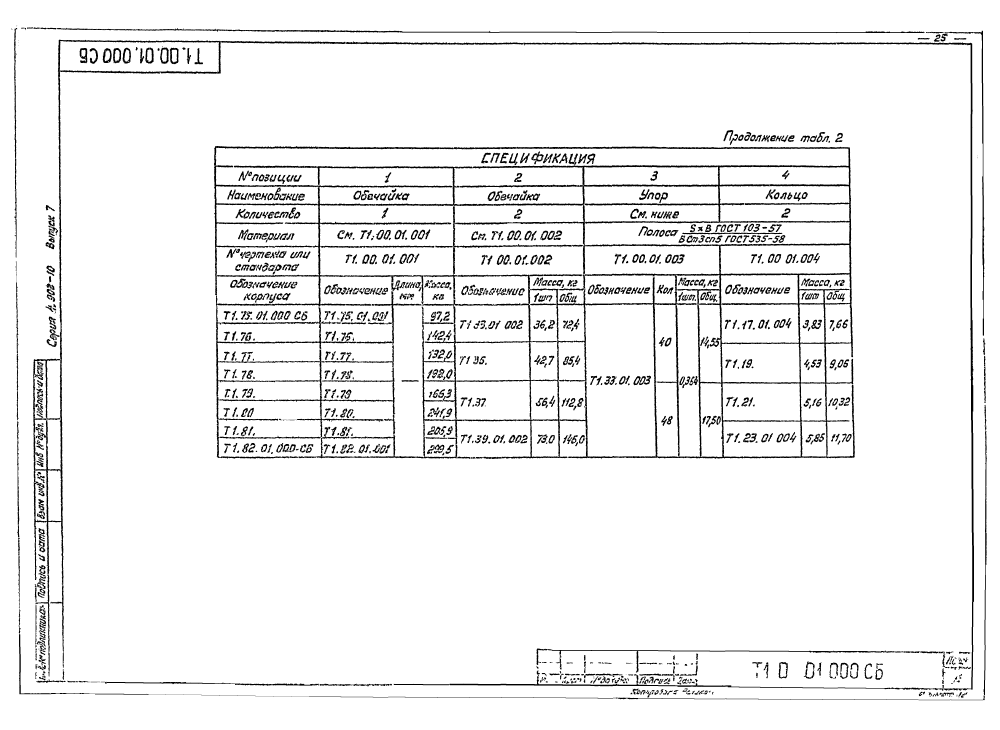 25
Т1.00.01.000 СБ
Продолжение табл. 2
СПЕЦИФИКАЦИЯ
№ позиции 1 2 3 4
Наименование Обечайка Обечайка Упор Кольцо
Количество 1 2 См. ниже 2
Материал См. Т1.00.01.001 См. Т1.00.01.002 Полоса 5×8 ГОСТ 103-57 / ВСт3сп5 ГОСТ 535-58
№ чертежа или стандарта Т1.00.01.001 Т1 00.01.002 Т1.00.01.003 Т1.00 01.004
Обозначение корпуса Обозначение Длина, мм Масса, кг Обозначение Масса, кг 1шт Общ. Обозначение Кол Масса, кг 1шт. Общ. Обозначение Масса, кг 1шт Общ.
Т1.75.01.000 СБ Т1.75.01.001 — 97,2 Т1 33.01 002 36,2 72,4 Т1.33.01.003 40 0,364 14,55 Т1.17.01.004 3,83 7,66
Т1.76. Т1.76. 142,4
Т1.77. Т1.77. 132,0 Т1 35. 42,7 85,4 Т1.19. 4,53 9,06
Т1.78. Т1.78. 192,0
Т1.79. Т1.79 165,3 Т1.37. 56,4 112,8 48 17,50 Т1.21. 5,16 10,32
Т1.80 Т1.80. 241,9
Т1.81. Т1.81. 205,9 Т1.39.01.002 73,0 146,0 Т1.23.01 004 5,85 11,70
Т1.82.01.000-СБ Т1.82.01.001 299,5
Серия 4.903-10 Выпуск 7
Подпись и дата
Взам инв.№
Инв №дубл.
Подпись и дата
Инв.№ подлинника
Подпись Дата
Т1 0 01 000 СБ
Лист
Копировал